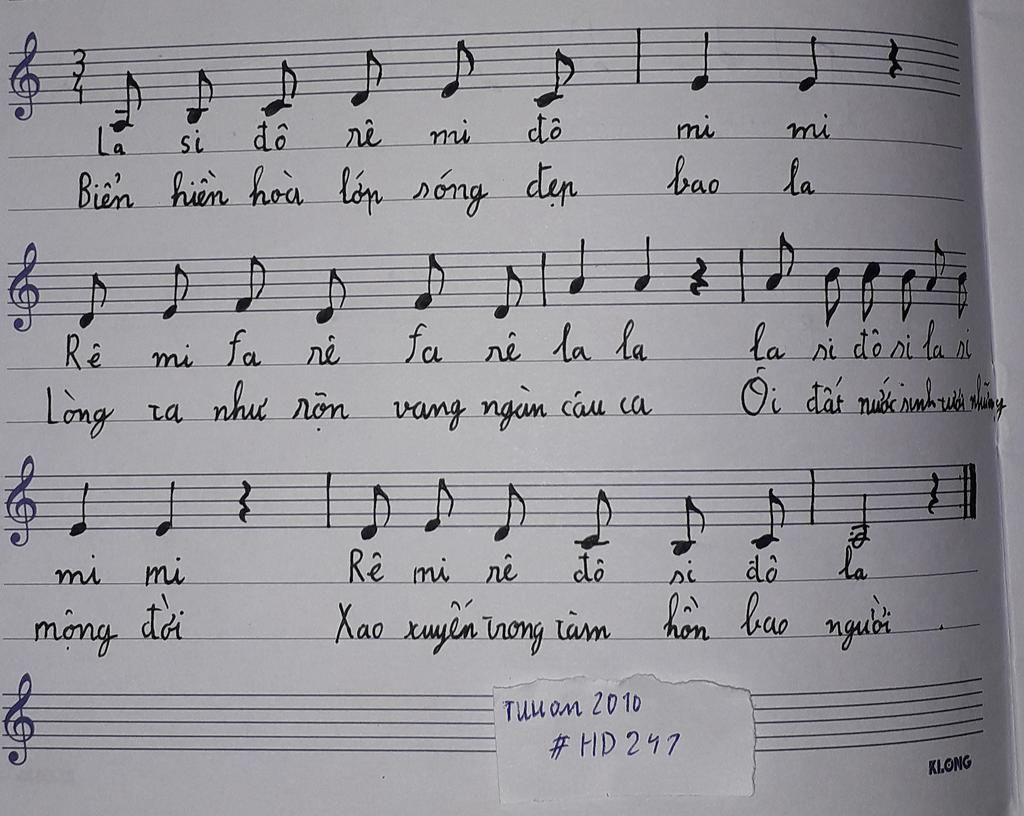 3
4
La si đô rê mi đô mi mi
Biển hiền hoà lớp sóng đẹp bao la
Rê mi fa rê fa rê la la la si đô si la si
Lòng ta như rộn vang ngàn câu ca Ôi đất nước sinh tươi những
mi mi Rê mi rê đô si đô la
mộng đời Xao xuyến trong tâm hồn bao người .
TUUOM 2010
#HD247
KLONG